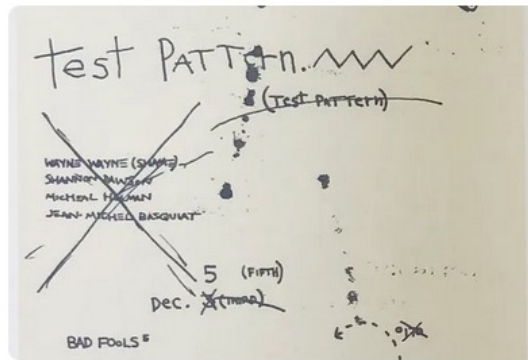 Test PATTErn.
(TEST PATTErn)
WAYNE WAYNE (SHAME)
SHANNON DAWSON
MICHEAL HOLMAN
JEAN-MICHEL BASQUIAT
5 (FIFTH)
DEC. 3 (THIRD)
BAD FOOLS 5